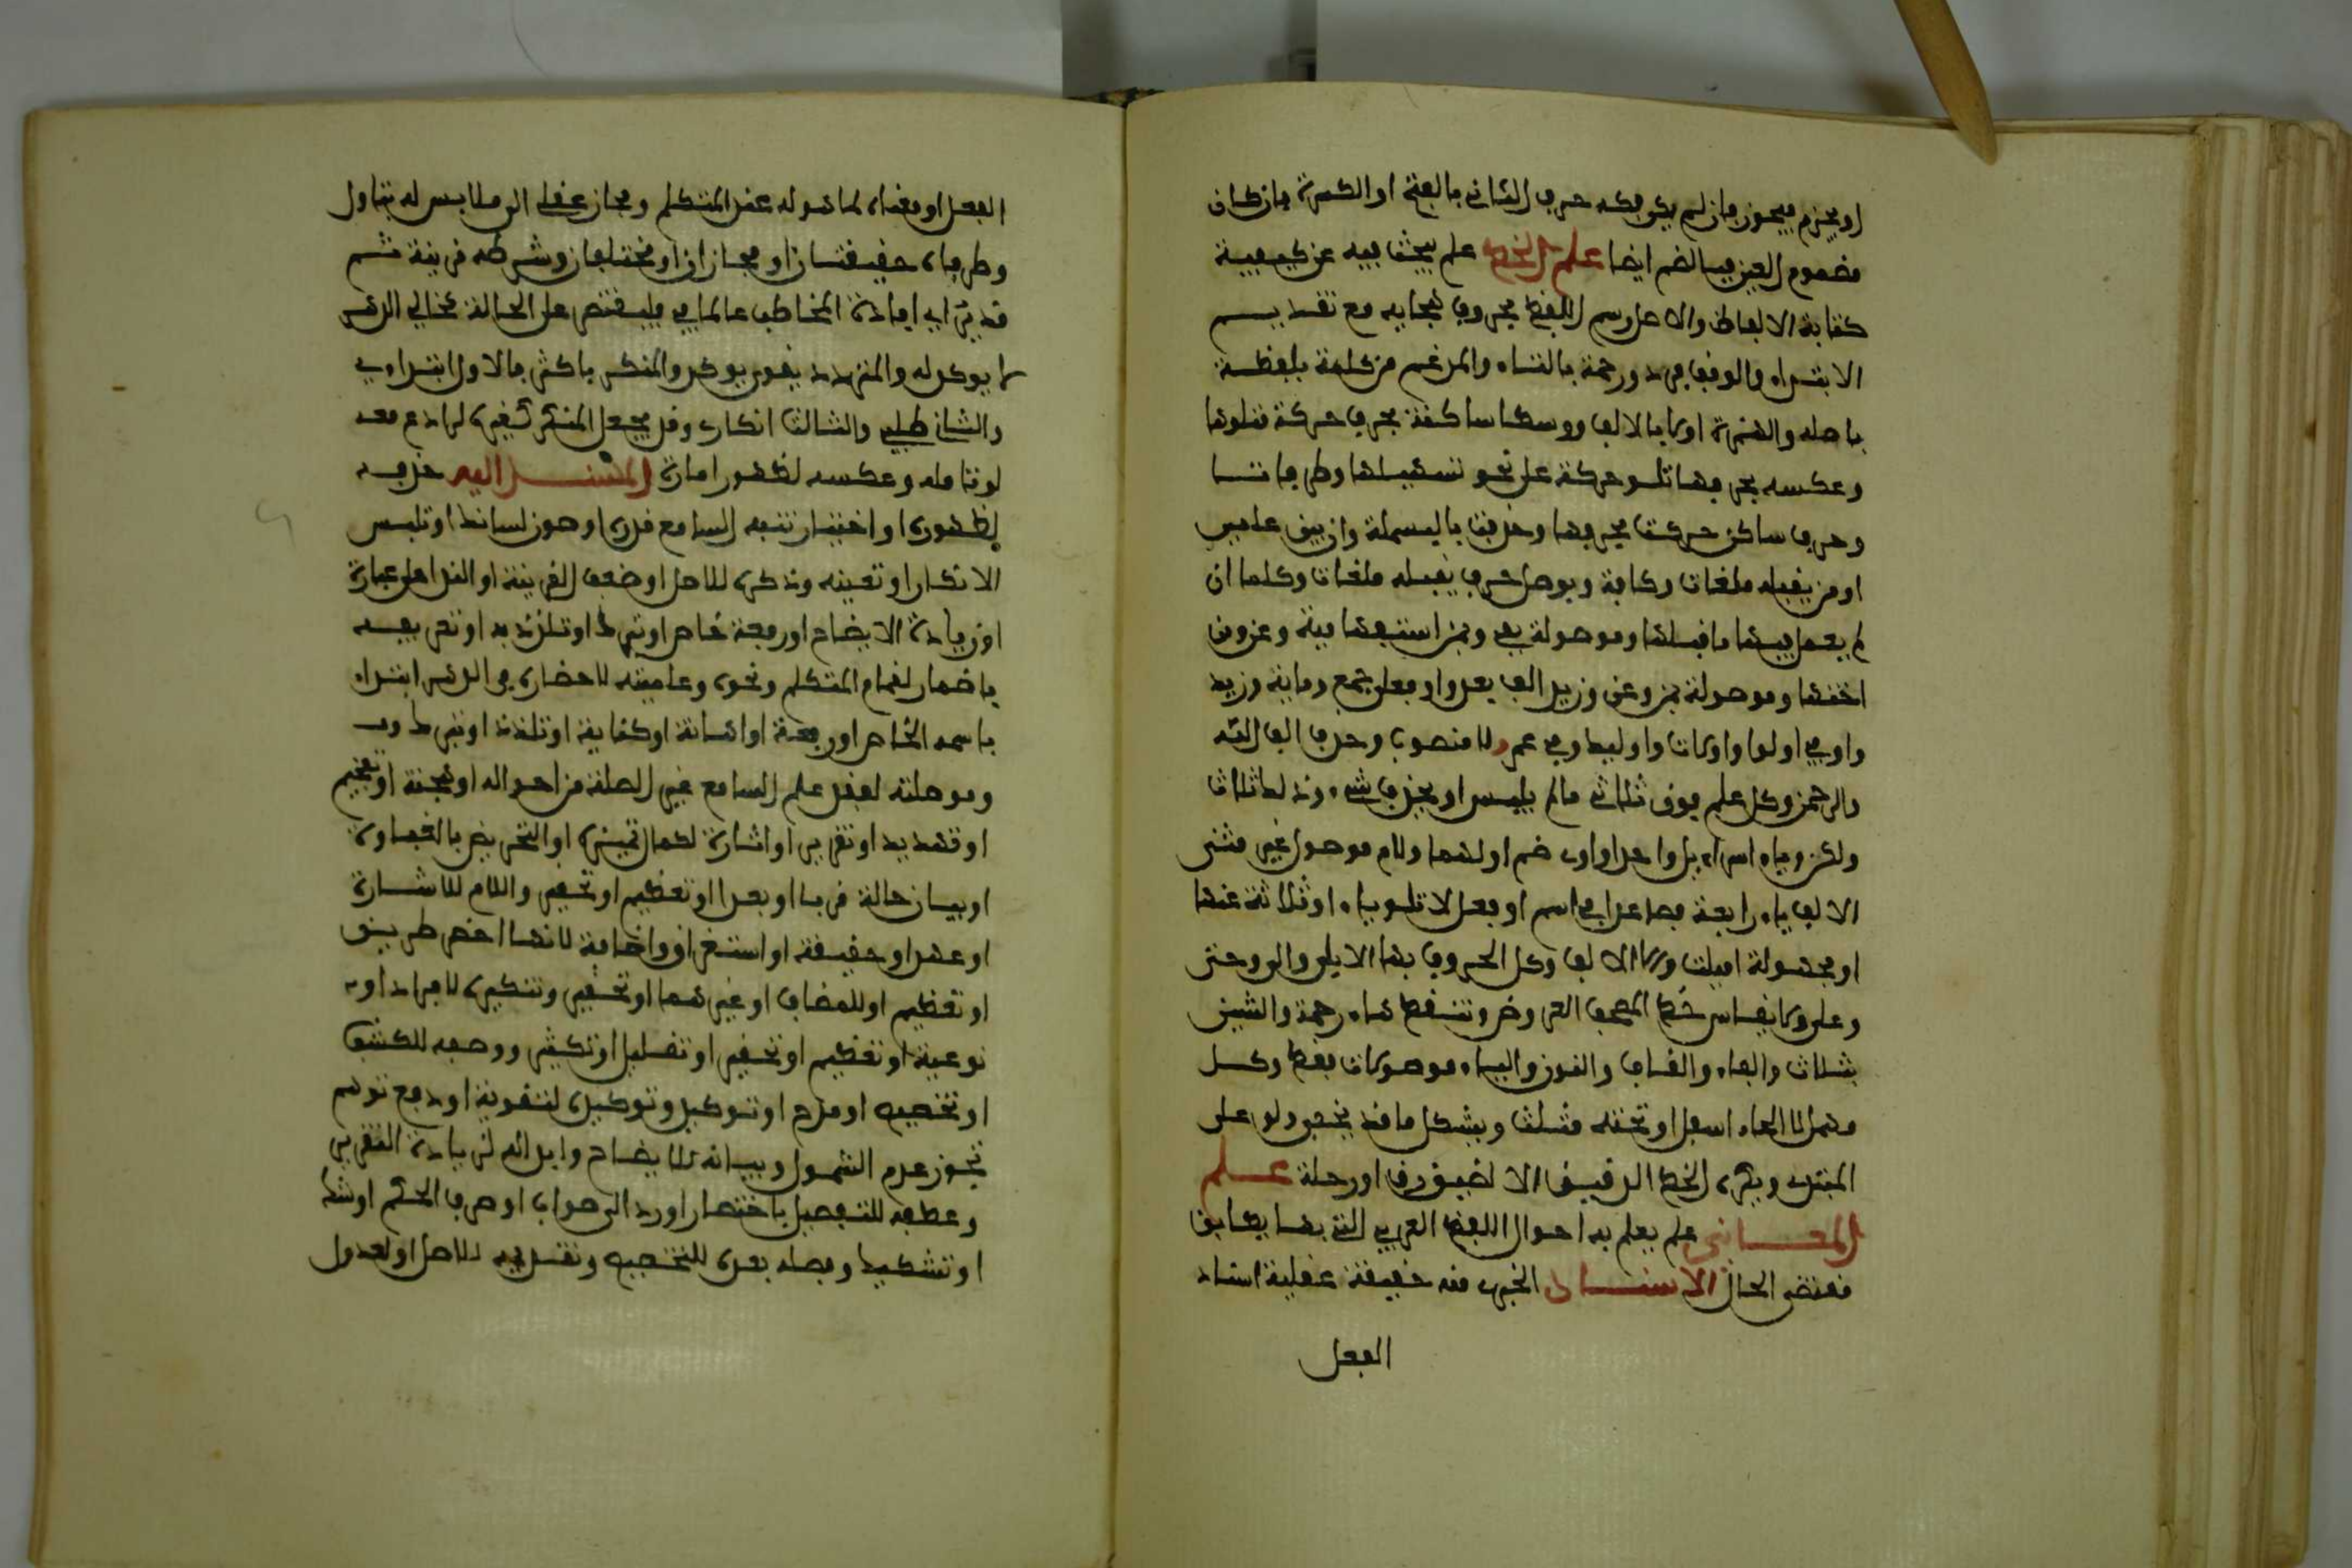 او يجزم فيجوز فان لم يكن فكه حرك الثاني بالفتح او الكسرة فان كان
مضموم العين فبالضم ايضا علم الخط علم يبحث فيه عن كيفية
كتابة الالفاظ والاصل رسم اللفظ بحروف هجايه مع تقديـــم
الابتداء والوقف فره ورحمة بالتاء والمدغم من كلمة بلفظـــه
باصله والهمزة اولا بالالف ووسطا ساكنة بحرف حركة متلوها
وعكسه بحرفها تلو حركة على نحو تسهيلها وطرفا تـــلـــا
وحرف ساكن حركت بحرفها وحذفت بالبسملة وابن بين علمين
او من يقبله ملغات وكافة ويوصل حرف يقبله ملغات وكلما ان
لم يعمل فيها ما قبلها وموصولة بفي ومن استفهامية وعن ومن
اختها وموصولة بمن وعن وزيد الف بعد واو فعل جمع ومايه وزيد
واو في اولوا واولات واوليك وفي عمرو لا منصوبا وحذف الف الله
والرحمن وكل علم فوق ثلاثي ما لم يلبس او يحذف شيء وذلك ثلاث
ولكن وياء اسراءيل واحد واوي ضم اولهما ولام موصول غير مثنى
الالف ياء رابعة فصاعدا في اسم او فعل لا تلو ياء او ثلاثة عنها
او مجهولة اميلت والا الالف وكل الحروف بها الا بلى والى وحتى
وعلى ولا يقاس خط المصحف العروض وتنقط هاء رحمة والشين
بثلاث والفاء والقاف والنون والياء موصولات فقط وكـــل
مهمل لا الحاء اسفل او تحته مثلث ويشكل ما قد يخفى ولو على
المبتدي ويكره الخط الدقيق الا لضيق رق او رحلة علـــم
المعـــاني علم يعلم به احوال اللفظ العربي التي بها يطابق
مقتضى الحال الاسنـــاد الخبري منه حقيقة عقلية اسناد
الفعل
الفعل او معناه لما هو له عند المتكلم ومجاز عقلي الى ملابس له بتاول
وطرفاه حقيقتان او مجازان او مختلفان وشرطه قرينة ثـــم
قد يراد افادة المخاطب عالما في فليقتصر على الحاجة فخالي الذهن
لا يوكد له والمتردد يقوى بموكد والمنكر باكثر فالاول ابتداءي
والثاني طلبي والثالث انكاري وقد يجعل المنكر كغيره لرادع معه
لو تامله وعكسه لظهور امارة المسنـــد اليه حذفه
لظهوره او اختبار تنبه السامع قدره او صون لسانك او تلبس
الانكار او تعينه وذكره للاصل او ضعف القرينة او الندا على غباوة
او زيادة الايضاح او رفعة خاص او تبرك او تلذذ به او تعريفـــه
باضمار لمقام المتكلم ونحوه وعلمية لاحضاره في الذهن ابتداء
باسمه الخاص او رفعة او اهانة او كناية او تلذذ او تبرك به
وموصلته لفقد علم السامع غير الصلة من احواله او هجنة او تفخيم
او تهديد او تقرير او اشارة لكمال تمييزه او التعريض بالغباوة
او بيان حالة قربا او بعدا او تعظيم او تحقير واللام للاشـــارة
او عهد او حقيقة او استغراق واضافة لانها اخصر طريق
او تعظيم او للمضاف او غيرهما او تحقير وتنكيره للافراد او
نوعية او تعظيم او تحقير او تقليل او تكثير ووصفه للكشف
او تخصيص او مدح او توكيد وتوكيده لتقوية او دفع توهم
تجوز عدم الشمول وبيانه للايضاح وابداله لزيادة التقرير
وعطفه للتفصيل باختصار او رد الى صواب او صرف الحكم او شك
او تشكيك وفصله بعده للتخصيص وتقديمه للاصل او لعدول